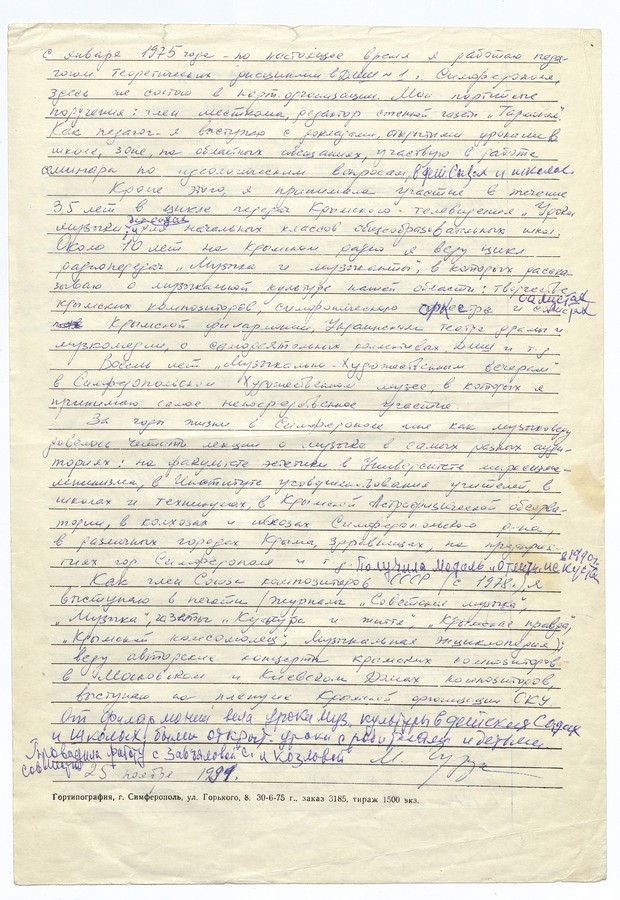 С января 1975 года - по настоящее время я работаю педа-
гогом теоретических дисциплин в ДМШ № 1 г. Симферополя,
здесь же состою в парт. организации. Мои партийные
поручения: член месткома, редактор стенной газеты „Гармония".
Как педагог я выступаю с докладами, открытыми уроками в
школе, зоне, на областных совещаниях, участвую в работе
семинара по идеологическим вопросам, в дет. садах и школах.
Кроме этого, я принимала участие в течение
3,5 лет в цикле передач Крымского телевидения „Уроки
музыки" для начальных классов общеобразовательных школ.
Около 10 лет на Крымском радио я веду цикл
радиопередач „Музыка и музыканты", в которых расска-
зываю о музыкальной культуре нашей области: творчестве
крымских композиторов, симфонического оркестра и солистах
Крымской филармонии, Украинского театра драмы и
музкомедии, о самодеятельных коллективах, ДМШ и т.д.
Восемь лет „Музыкально-Художественным вечерам"
в Симферопольском Художественном музее в которых я
принимаю самое непосредственное участие.
За годы жизни в Симферополе мне как музыковеду
довелось читать лекции о музыке в самых разных ауди-
ториях: на факультете эстетики в Университете марксизма-
ленинизма, в Институте усовершенствования учителей, в
школах и техникумах, в Крымской Астрофизической обсерва-
тории, в колхозах и совхозах Симферопольского р-на,
в различных городах Крыма, здравницах, на предприя-
тиях гор Симферополя и т.д. Получила Медаль „Отличн. искусства в 1970 г.
Как член Союза композиторов СССР (с 1978 г.) я
выступаю в печати (журналы „Советская музыка",
„Музыка", газеты „Культура и життя", „Крымская правда",
„Крымский комсомолец", Музыкальная Энциклопедия);
веду авторские концерты крымских композиторов
в Московском и Киевском Домах композиторов,
выступаю на пленуме Крымской организации СКУ.
От филармонии вела уроки муз. культуры в детских садах
и школах. Были открыт. уроки с родителями и детьми
Проводила работу с Завьяловой С. и Козловой
совместно
25 ноября 1991.
Гортипография, г. Симферополь, ул. Горького, 8. 30-6-75 г., заказ 3185, тираж 1500 экз.